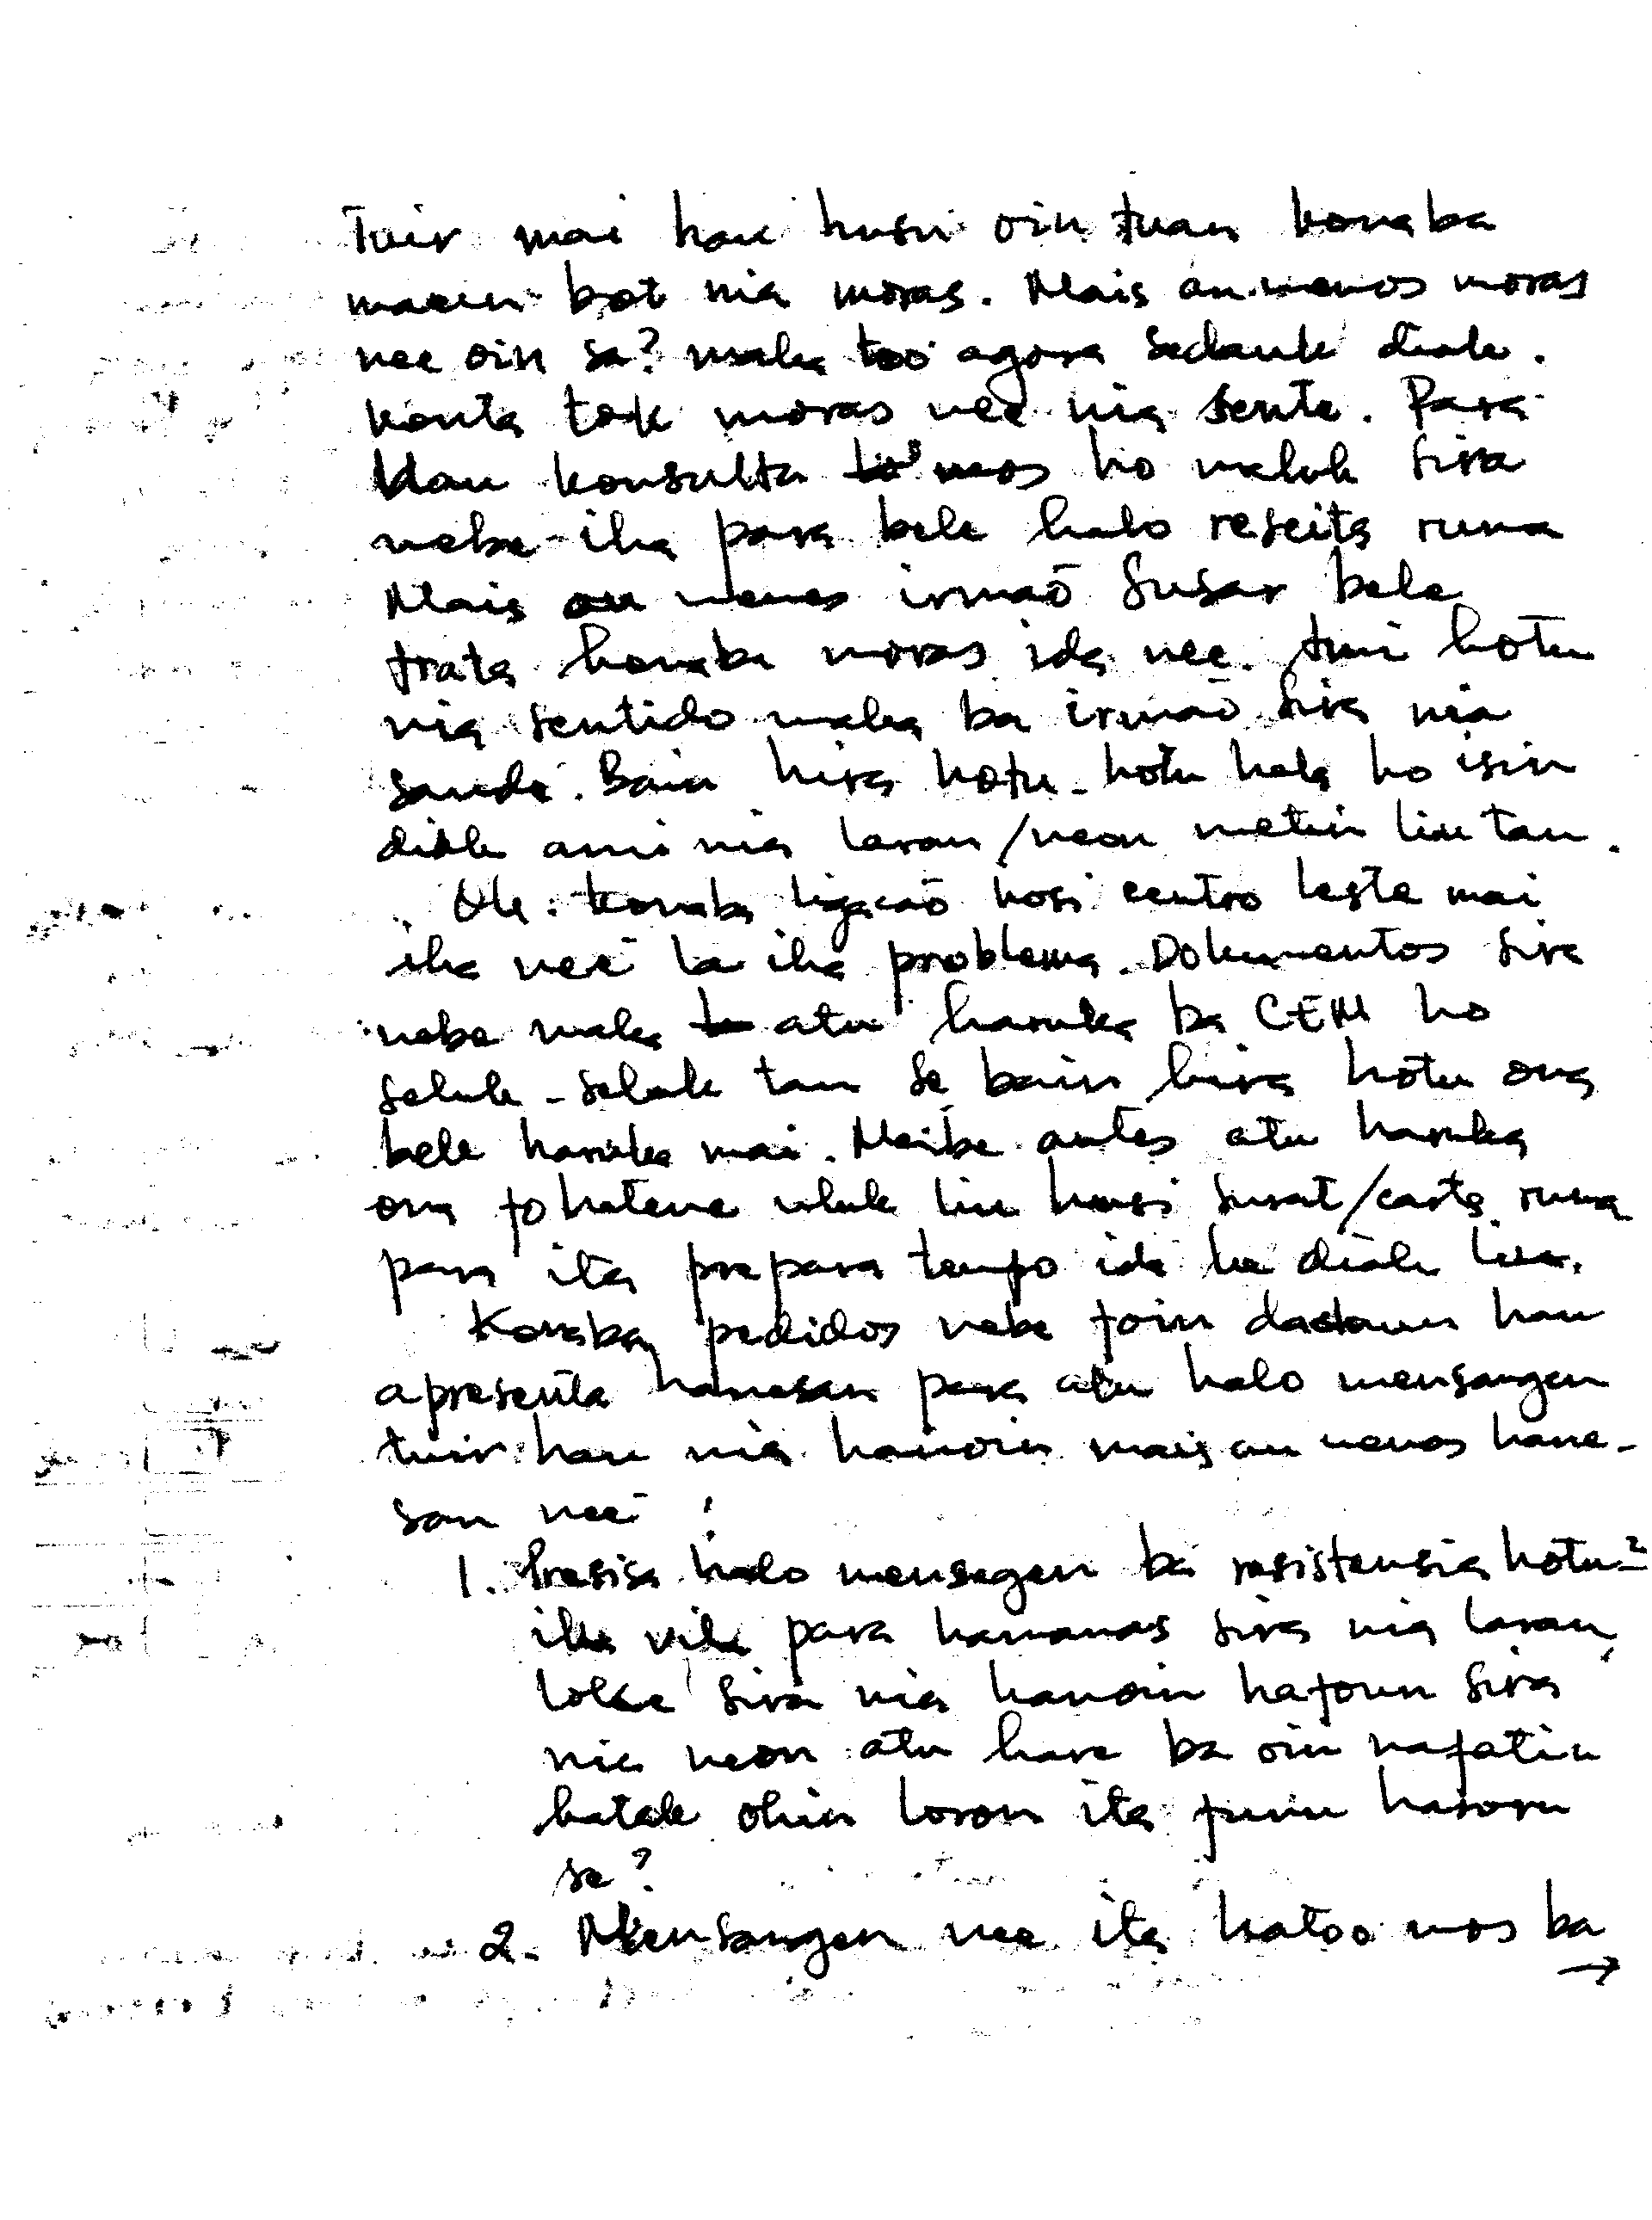 Tuir mai hau husu oin tuan konaba
maun bot nia moras. Mais ou menos moras
nee oin sa? maka too agora sedauk diak.
Konta tok moras nee nia sente. Para
Hau konsulta mos ho maluk sira
nebe iha para bele halo reseita ruma
Mais ou menos irmaõ susar bele
trata konaba moras ida nee. tuir hotu
nia sentido maka ba irmaõ sira nia
saude. Bain hira hotu-hotu hela ho isin
diak ami nia laran/neon metin liu tan.
Ok. konaba ligacaõ hosi centro leste mai
iha nee la iha problema. Dokumentos sira
nebe maka atu haruka ba CEM ho
seluk-seluk tan se bain hira hotu ona
bele haruka mai. Maibe antes atu haruka
ona fo hatene uluk liu husi surat/carta ruma
para ita prepara tempo ida ke diak liu.
Konaba pedidos nebe foin dadaun hau
apresenta hanesan para atu halo mensangen
tuir hau nia hanoin mais ou menos hane-
san nee :
1. Presisa halo mensagen ba resistensia hotu2
iha vila para hamanas sira nia laran,
lokke sira nia hanoin hafoun sira
nia neon atu hare ba oin nafatin
katak ohin loron ita funu hasoru
se?
2. Mensangen nee ita hatoo mos ba
→